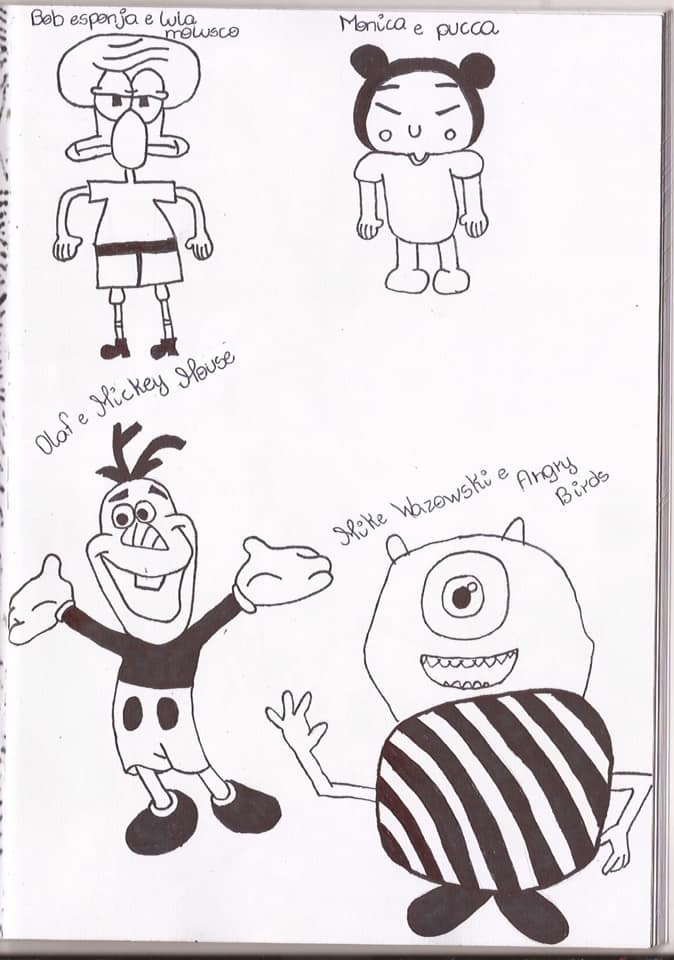 Bob esponja e Lula
molusco
Monica e pucca
Olaf e Mickey Mouse
Mike Wazowski e
Angry
Birds